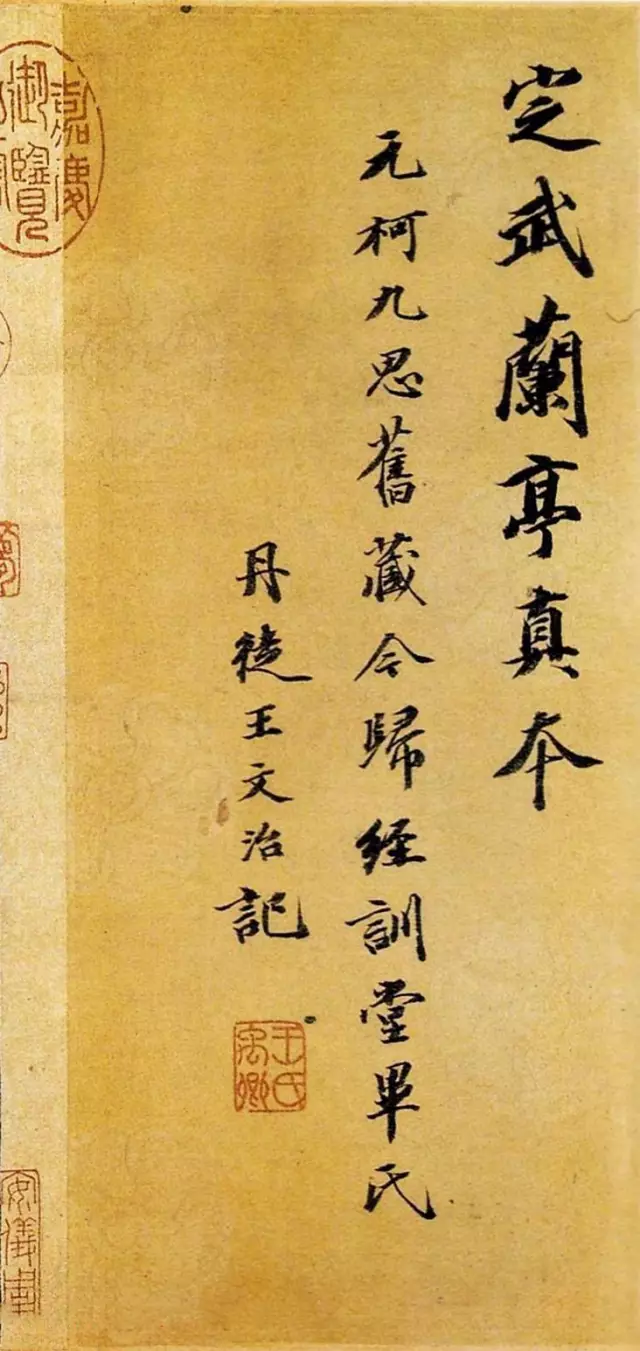 定武蘭亭真本
元柯九思舊藏今歸經訓堂畢氏
丹徒王文治記
王氏禹卿
嘉慶御覽
安儀周